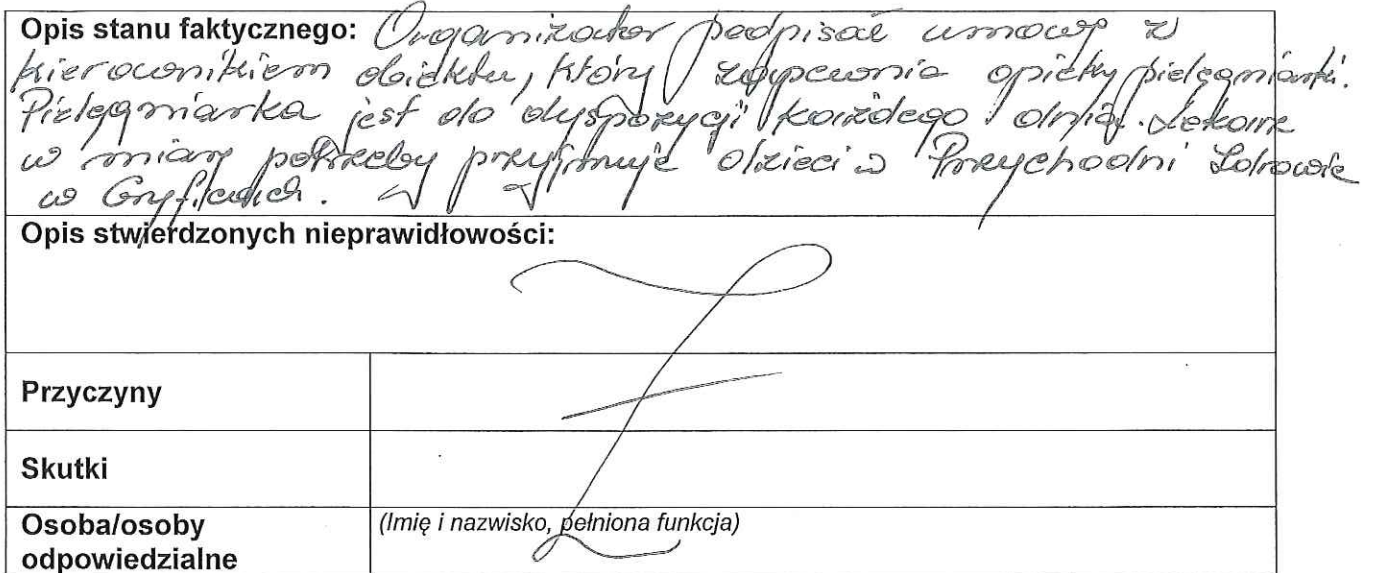 Opis stanu faktycznego: Organizator podpisał umowę z
kierownikiem obiektu, który zapewnia opiekę pielęgniarki.
Pielęgniarka jest do dyspozycji każdego dnia. Lekarz
w miarę potrzeby przyjmuje dzieci w Przychodni Zdrowia
w Gryficach.
Opis stwierdzonych nieprawidłowości:
Przyczyny
Skutki
Osoba/osoby
odpowiedzialne
(Imię i nazwisko, pełniona funkcja)